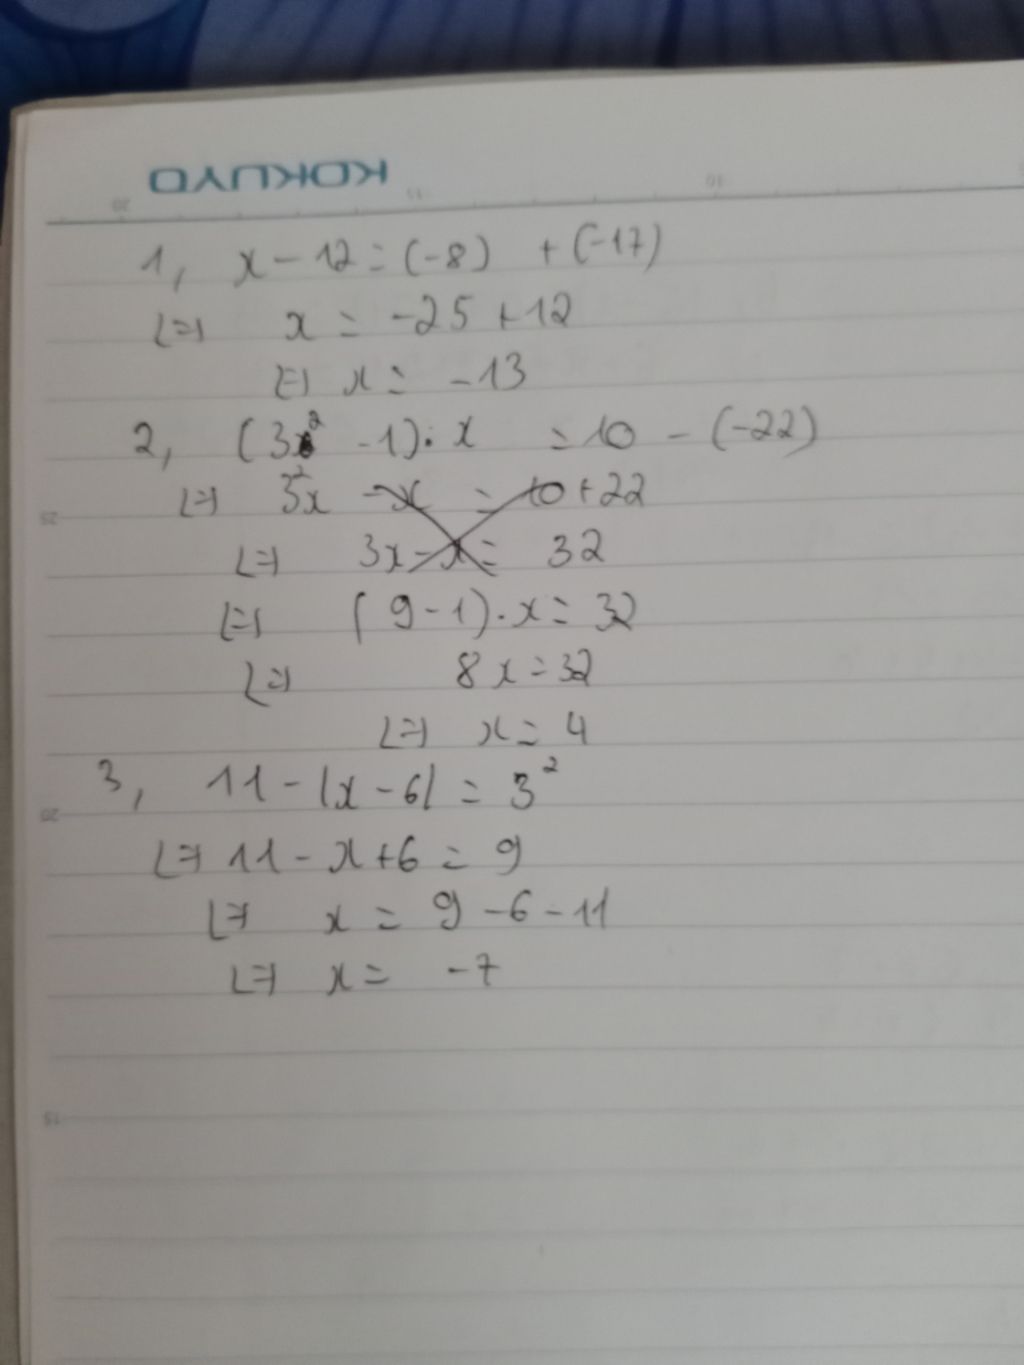 KOKUYO
20 15 10
1, x - 12 = (-8) + (-17)
⇔ x = -25 + 12
⇔ x = -13
2, (3² - 1). x = 10 - (-22)
⇔ 3²x - x = 10 + 22
⇔ 3x - x = 32
⇔ (9 - 1). x = 32
⇔ 8x = 32
⇔ x = 4
3, 11 - |x - 6| = 3²
⇔ 11 - x + 6 = 9
⇔ x = 9 - 6 - 11
⇔ x = -7
25
20
15